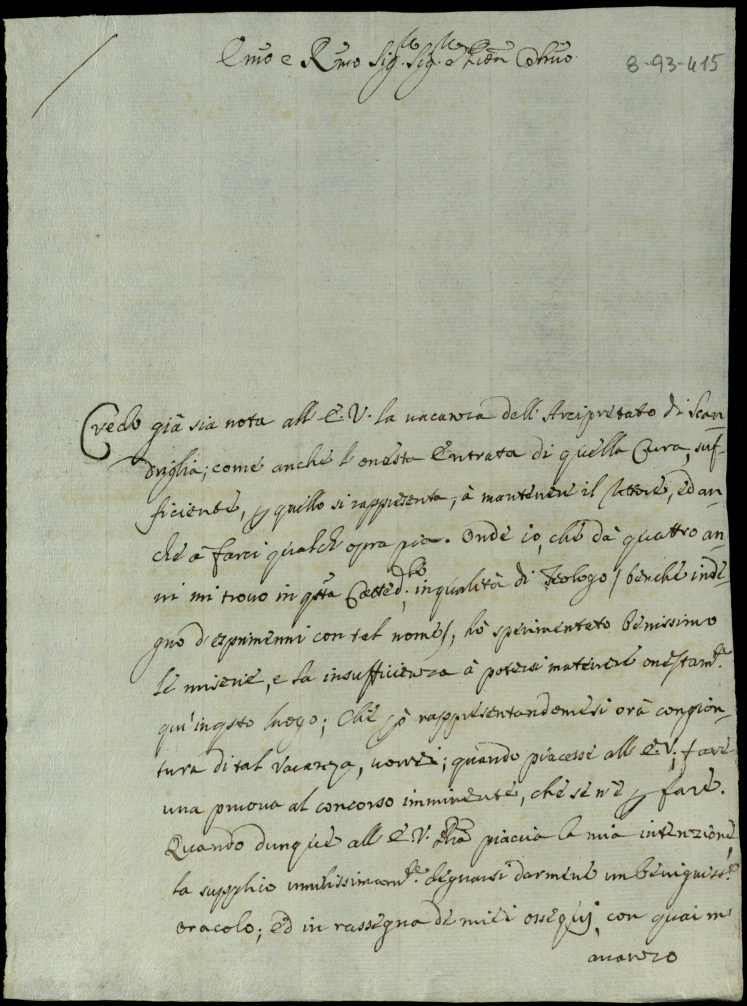 Em̃o e Rm̃o Sig.re Sig.re Pr̃on Col̃mo
8-93-415
Credo già sia nota all'E.V. la vacanza dell'Arcipretato di Scan-
driglia; come anche l'onesta Entrata di quella Cura, suf-
ficiente, p quello si rappresenta, à mantenere il Rettore, ed an-
che à farci qualch'opra pia. Onde io, che dà quattro an-
ni mi trovo in q̃sta Catted.le in qualità di Teologo (benche inde-
gno d'esprimermi con tal nome), hò sperimentato benissimo
le miserie, e la insufficienza à potersi mantenere onestam.te
qui in q̃sto luogo; Che p̀o rappresentandomesi orà congion-
tura di tal Vacanza, vorrei; quando piacesse all'E.V.; fare
una pruova al concorso imminente, che se n'è p fare.
Quando dunque all'E.V. piaccia la mia intenzione,
la supplico umilissimam.te degnarsi darmene un benigniss.o
oracolo; ed in rassegna de miei ossequj, con quai m'
avanzo